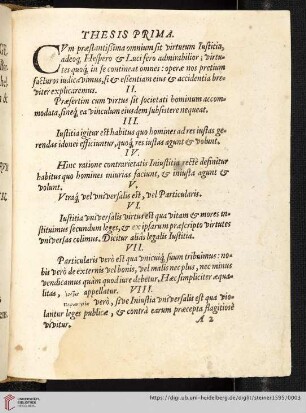 THESIS PRIMA.
CVm præstantissima omnium sit virtutum Iusticia,
adeoq́ Hespero & Lucifero admirabilior; virtu-
tes quoq́ in se contineat omnes: operæ nos pretium
facturos indicauimus, si & essentiam eius & accidentia bre-
viter explicaremus.
II.
Præsertim cum virtus sit societati hominum accom-
modata, sineq́ ea vinculum eiusdem subsistere nequeat.
III.
Iustitia igitur est habitus quo homines ad res iustas ge-
rendas idonei efficiuntur, quoq́ res iustas agunt & volunt.
IV.
Hinc ratione contrarietatis Iniustitia rectè definitur
habitus quo homines iniurias faciunt, & iniusta agunt &
volunt.
V.
Vtraq́ vel vniversalis est, vel Particularis.
VI.
Iustitia vniversalis virtus est qua vitam & mores in-
stituimus secundum leges, & ex ipsarum præscripto virtutes
vniversas colimus. Dicitur aliàs legalis Iustitia.
VII.
Particularis verò est qua vnicuiq́ suum tribuimus: no-
bis verò de externis vel bonis, vel malis nec plus, nec minus
vendicamus quàm quod iure debetur. Hæc simpliciter æqua-
litas, appellatur.
VIII.
verò, sive Iniustia vniversalis est qua vio-
lantur leges publicæ, & contrà earum præcepta flagitiosè
vivitur.
A 2
UNIVERSITÄTS-
BIBLIOTHEK
HEIDELBERG
https://digi.ub.uni-heidelberg.de/diglit/steiner1595/0003